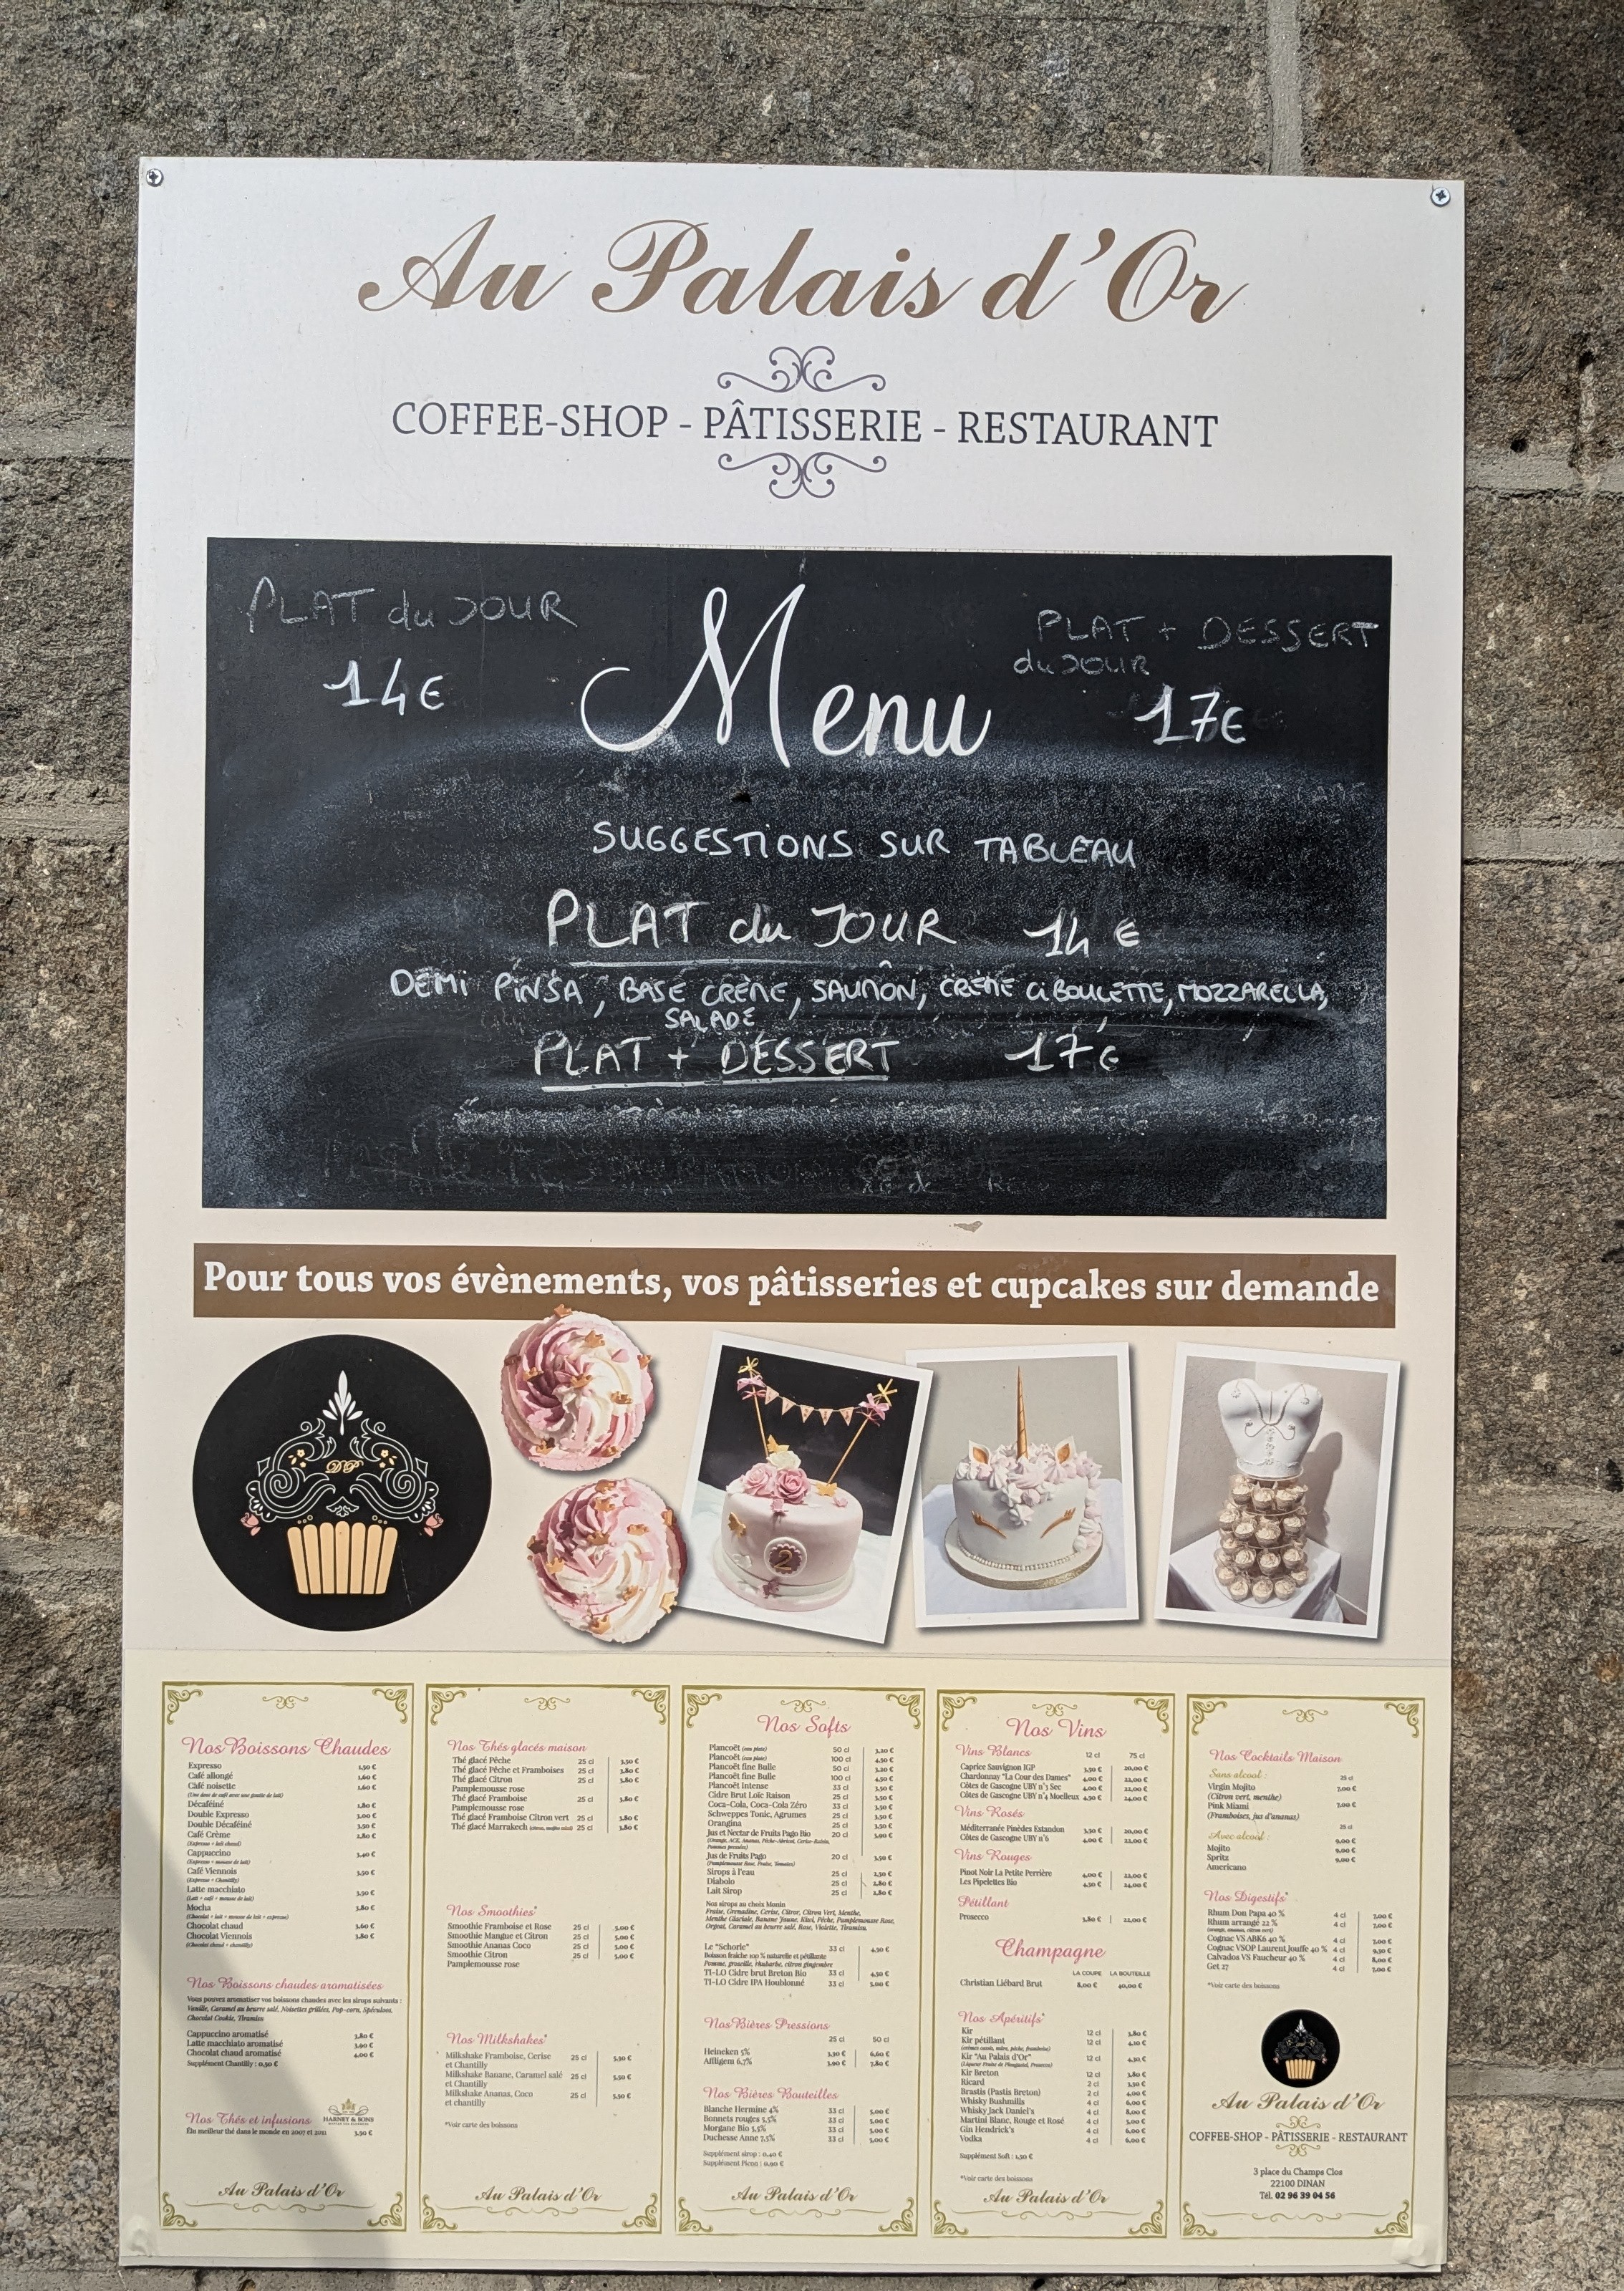 Au Palais d'Or
COFFEE-SHOP - PÂTISSERIE - RESTAURANT
PLAT du JOUR
14€
Menu
PLAT + DESSERT
du JOUR
17€
SUGGESTIONS SUR TABLEAU
PLAT du JOUR 14 €
DEMI PINSA, BASE CRÈME, SAUMON, CRÈME CIBOULETTE, MOZZARELLA,
SALADE
PLAT + DESSERT 17€
Pour tous vos évènements, vos pâtisseries et cupcakes sur demande
DP
2
Nos Boissons Chaudes
Expresso 1,50 €
Café allongé 1,60 €
Café noisette 1,60 €
(Une dose de café avec une goutte de lait)
Décaféiné 1,80 €
Double Expresso 3,00 €
Double Décaféiné 3,50 €
Café Crème 2,80 €
(Expresso + lait chaud)
Cappuccino 3,40 €
(Expresso + mousse de lait)
Café Viennois 3,50 €
(Expresso + Chantilly)
Latte macchiato 3,50 €
(Lait + café + mousse de lait)
Mocha 3,80 €
(Chocolat + lait + mousse de lait + expresso)
Chocolat chaud 3,60 €
Chocolat Viennois 3,80 €
(Chocolat chaud + chantilly)
Nos Boissons chaudes aromatisées
Vous pouvez aromatiser vos boissons chaudes avec les sirops suivants :
Vanille, Caramel au beurre salé, Noisettes grillées, Pop-corn, Spéculoos,
Chocolat Cookie, Tiramisu
Cappuccino aromatisé 3,80 €
Latte macchiato aromatisé 3,90 €
Chocolat chaud aromatisé 4,00 €
Supplément Chantilly : 0,50 €
Nos Thés et infusions HARNEY & SONS
Élu meilleur thé dans le monde en 2007 et 2011 3,50 €
Au Palais d'Or
Nos Thés glacés maison
Thé glacé Pêche 25 cl 3,50 €
Thé glacé Pêche et Framboises 25 cl 3,80 €
Thé glacé Citron 25 cl 3,80 €
Pamplemousse rose
Thé glacé Framboise 25 cl 3,80 €
Pamplemousse rose
Thé glacé Framboise Citron vert 25 cl 3,80 €
Thé glacé Marrakech 25 cl 3,80 €
Nos Smoothies*
Smoothie Framboise et Rose 25 cl 5,00 €
Smoothie Mangue et Citron 25 cl 5,00 €
Smoothie Ananas Coco 25 cl 5,00 €
Smoothie Citron 25 cl 5,00 €
Pamplemousse rose
Nos Milkshakes*
Milkshake Framboise, Cerise 25 cl 5,50 €
et Chantilly
Milkshake Banane, Caramel salé 25 cl 5,50 €
et Chantilly
Milkshake Ananas, Coco 25 cl 5,50 €
et chantilly
*Voir carte des boissons
Au Palais d'Or
Nos Softs
Plancoët (eau plate) 50 cl 3,20 €
Plancoët (eau plate) 100 cl 4,50 €
Plancoët fine Bulle 50 cl 3,20 €
Plancoët fine Bulle 100 cl 4,50 €
Plancoët Intense 33 cl 3,50 €
Cidre Brut Loïc Raison 25 cl 3,50 €
Coca-Cola, Coca-Cola Zéro 33 cl 3,50 €
Schweppes Tonic, Agrumes 25 cl 3,50 €
Orangina 25 cl 3,50 €
Jus et Nectar de Fruits Pago Bio 20 cl 3,90 €
Jus de Fruits Pago 20 cl 3,50 €
(Pamplemousse Rose, Fraise, Tomates)
Sirops à l'eau 25 cl 2,50 €
Diabolo 25 cl 2,80 €
Lait Sirop 25 cl 2,80 €
Nos sirops au choix Monin
Fraise, Grenadine, Cerise, Citron, Citron Vert, Menthe,
Menthe Glaciale, Banane Jaune, Kiwi, Pêche, Pamplemousse Rose,
Orgeat, Caramel au beurre salé, Rose, Violette, Tiramisu.
Le "Schorle" 33 cl 4,50 €
Boisson fraîche 100 % naturelle et pétillante
Pomme, groseille, rhubarbe, citron gingembre
TI-LO Cidre brut Breton Bio 33 cl 4,50 €
TI-LO Cidre IPA Houblonné 33 cl 5,00 €
Nos Bières Pressions
25 cl 50 cl
Heineken 5% 3,30 € 6,60 €
Affligem 6,7% 3,90 € 7,80 €
Nos Bières Bouteilles
Blanche Hermine 4% 33 cl 5,00 €
Bonnets rouges 5,5% 33 cl 5,00 €
Morgane Bio 5,5% 33 cl 5,00 €
Duchesse Anne 7,5% 33 cl 5,00 €
Supplément sirop : 0,40 €
Supplément Picon : 0,90 €
Au Palais d'Or
Nos Vins
Vins Blancs 12 cl 75 cl
Caprice Sauvignon IGP 3,50 € 20,00 €
Chardonnay "La Cour des Dames" 4,00 € 22,00 €
Côtes de Gascogne UBY n°3 Sec 4,00 € 22,00 €
Côtes de Gascogne UBY n°4 Moelleux 4,50 € 24,00 €
Vins Rosés
Méditerranée Pinèdes Estandon 3,50 € 20,00 €
Côtes de Gascogne UBY n°6 4,00 € 22,00 €
Vins Rouges
Pinot Noir La Petite Perrière 4,00 € 22,00 €
Les Pipelettes Bio 4,50 € 24,00 €
Pétillant
Prosecco 3,80 € 22,00 €
Champagne
LA COUPE LA BOUTEILLE
Christian Liébard Brut 8,00 € 40,00 €
Nos Apéritifs*
Kir 12 cl 3,80 €
Kir pétillant 12 cl 4,10 €
(crèmes cassis, mûre, pêche, framboise)
Kir "Au Palais d'Or" 12 cl 4,50 €
(Liqueur Fraise de Plougastel, Prosecco)
Kir Breton 12 cl 3,80 €
Ricard 2 cl 3,50 €
Brastis (Pastis Breton) 2 cl 4,00 €
Whisky Bushmills 4 cl 6,00 €
Whisky Jack Daniel's 4 cl 8,00 €
Martini Blanc, Rouge et Rosé 4 cl 5,00 €
Gin Hendrick's 4 cl 6,00 €
Vodka 4 cl 6,00 €
Supplément Soft : 1,50 €
*Voir carte des boissons
Au Palais d'Or
Nos Cocktails Maison
Sans alcool : 25 cl
Virgin Mojito 7,00 €
(Citron vert, menthe)
Pink Miami 7,00 €
(Framboises, jus d'ananas)
25 cl
Avec alcool :
Mojito 9,00 €
Spritz 9,00 €
Americano 9,00 €
Nos Digestifs*
Rhum Don Papa 40 % 4 cl 7,00 €
Rhum arrangé 22 % 4 cl 7,00 €
(orange, ananas, citron vert)
Cognac VS ABK6 40 % 4 cl 7,00 €
Cognac VSOP Laurent Jouffe 40 % 4 cl 9,50 €
Calvados VS Faucheur 40 % 4 cl 8,00 €
Get 27 4 cl 7,00 €
*Voir carte des boissons
Au Palais d'Or
COFFEE-SHOP - PÂTISSERIE - RESTAURANT
3 place du Champs Clos
22100 DINAN
Tél. 02 96 39 04 56